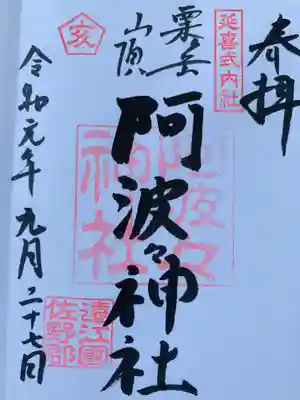 奉拝
延喜式内社
粟岳
山頂
阿波々神社
阿波々
神社
亥
令和元年九月二十七日
遠江國
佐野郡